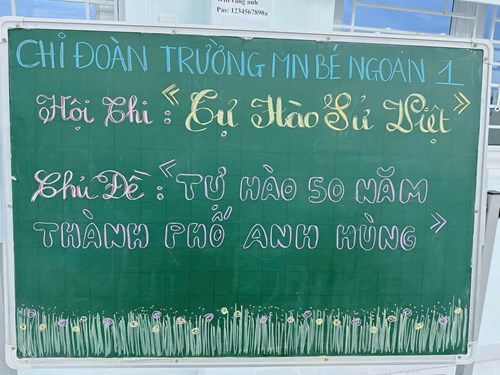 Pas: 1234567890a
CHI ĐOÀN TRƯỜNG MN BÉ NGOAN 1
Hội Thi : « Tự Hào Sử Việt »
Chủ Đề : « TỰ HÀO 50 NĂM
THÀNH PHỐ ANH HÙNG »